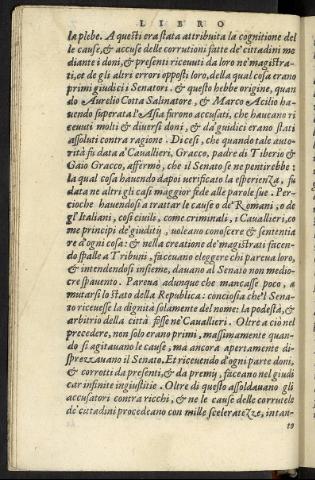 LIBRO
la plebe. A questi era stata attribuita la cognitione del
le cause, & accuse delle corrutioni fatte de' cittadini me
diante i doni, & presenti riceuuti da loro ne' magistra-
ti, et de gli altri errori opposti loro, della qual cosa erano
primi giudici i Senatori, & questo hebbe origine, quan
do Aurelio Cotta Salinatore, & Marco Acilio ha-
uendo superata l'Asia furono accusati, che haueano ri
ceuuti molti & diuersi doni, & da' giudici erano stati
assoluti contra ragione. Dicesi, che quando tale auto-
rità fu data a' Cauallieri, Gracco, padre di Tiberio &
Gaio Gracco, affermò, che il Senato se ne pentirebbe:
la qual cosa hauendo dapoi verificato la esperienza, fu
data ne altri gli casi maggior fede alle parole sue. Per-
cioche hauendosi a trattar le cause o de' Romani, o de
gl'Italiani, cosi ciuili, come criminali, i Cauallieri, co
me principi de' giuditij, voleano conoscere & sententia
re d'ogni cosa: & nella creatione de' magistrati facen-
do spalle a Tribuni, faceuano eleggere chi parea loro,
& intendendosi insieme, dauano al Senato non medio-
cre spauento. Pareua adunque che mancasse poco, a
mutarsi lo stato della Republica: conciosia che'l Sena-
to riceuesse la dignità solamente del nome: la podestà, &
arbitrio della città fosse ne' Cauallieri. Oltre a ciò nel
precedere, non solo erano primi, massimamente quan-
do si agitauano le cause, ma ancora apertamente di-
sprezzauano il Senato. Et riceuendo d'ogni parte doni,
& corrotti da presenti, & da premij, faceano nel giudi
car infinite ingiustitie. Oltre di questo assoldauano gli
accusatori contra ricchi, & ne le cause delle corruttele
de' cittadini procedeano con mille sceleratezze, intan-
to